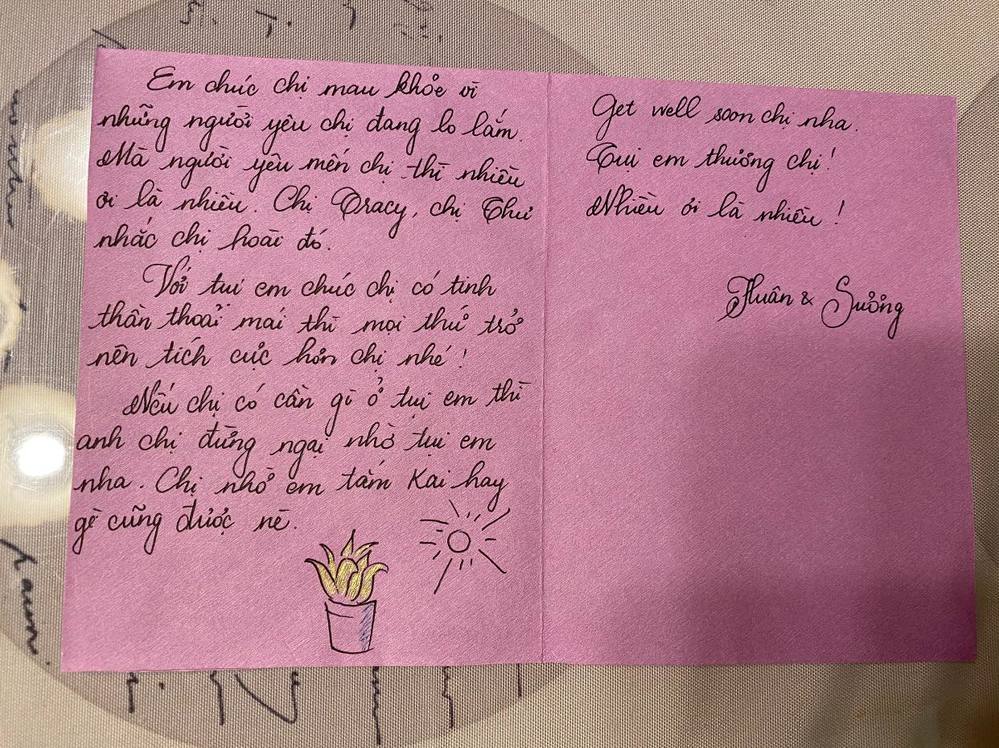 Em chúc chị mau khỏe vì
những người yêu chị đang lo lắm.
Mà người yêu mến chị thì nhiều
ơi là nhiều. Chị Tracy, chị Thư
nhắc chị hoài đó.
Với tụi em chúc chị có tinh
thần thoải mái thì mọi thứ trở
nên tích cực hơn chị nhé!
Nếu chị có cần gì ở tụi em thì
anh chị đừng ngại nhờ tụi em
nha. Chị nhờ em tắm Kai hay
gì cũng được nè.
Get well soon chị nha.
Tụi em thương chị!
Nhiều ơi là nhiều!
Thuân & Sương